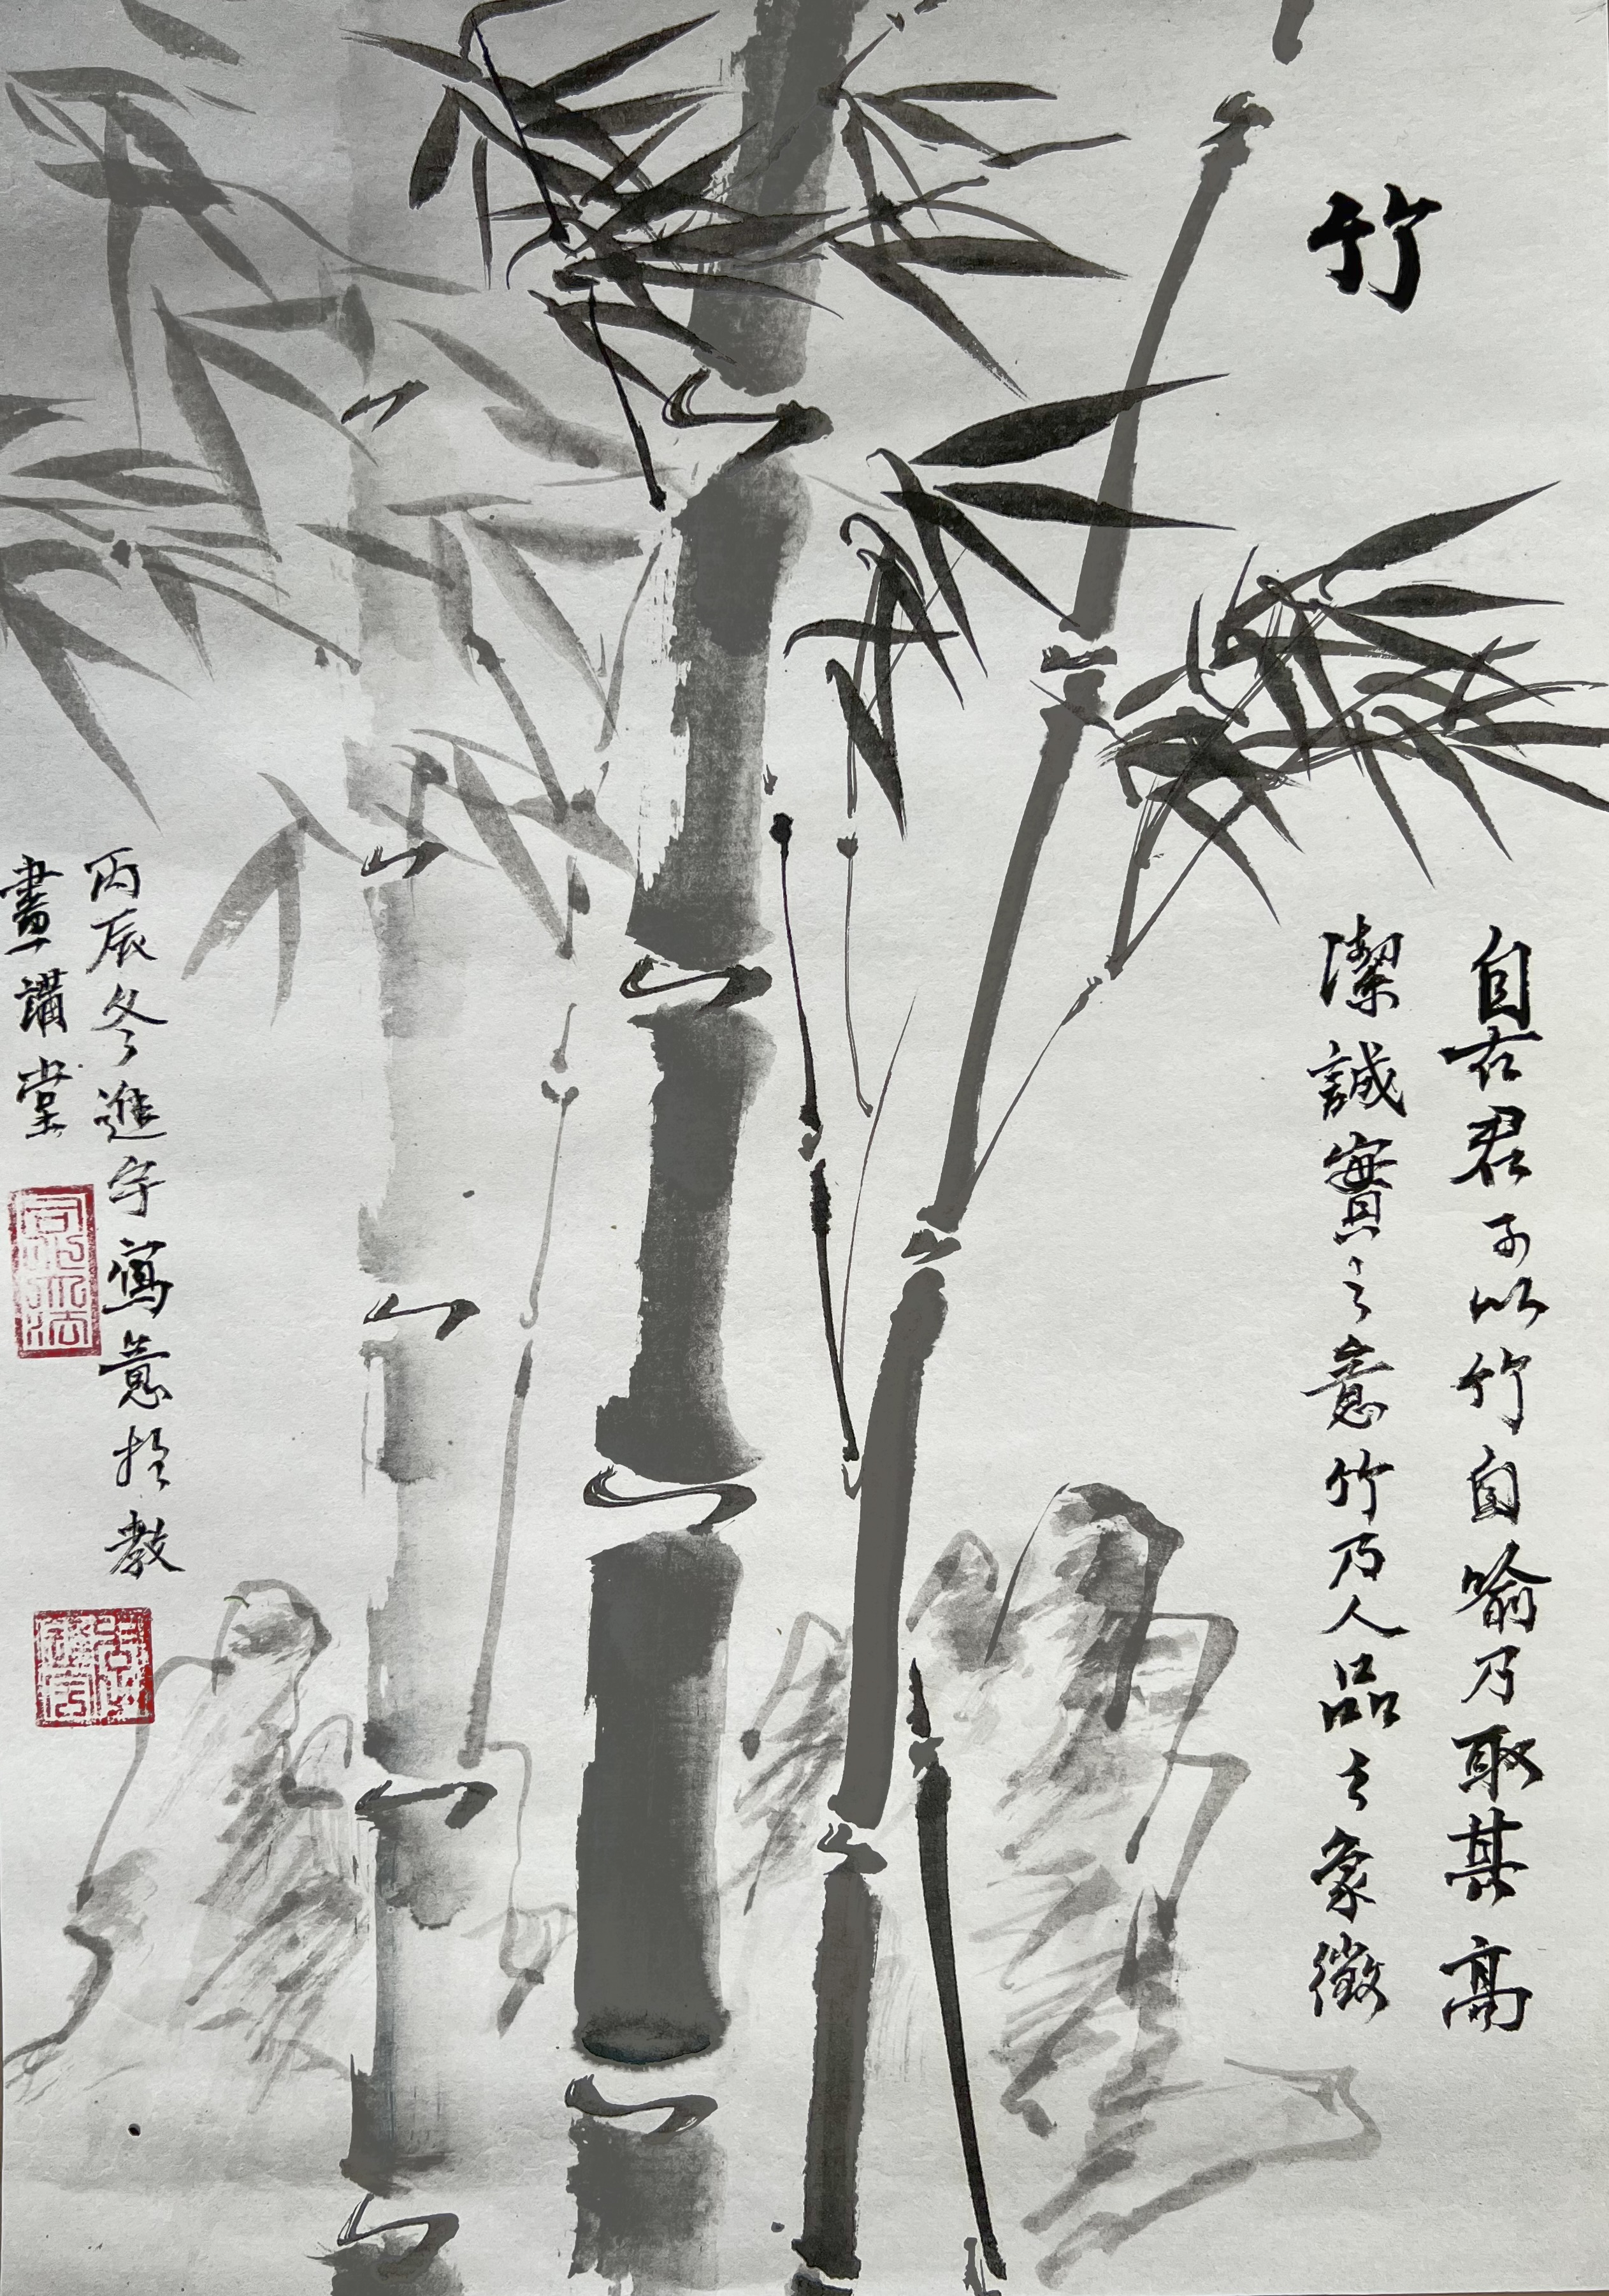 竹
自古君子以竹自喻乃取其高
潔誠實之意竹乃人品之象徵
丙辰冬進宇寫意於教
畫講堂